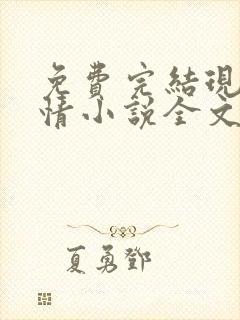 免費完結現
情小說全文
夏勇鄧